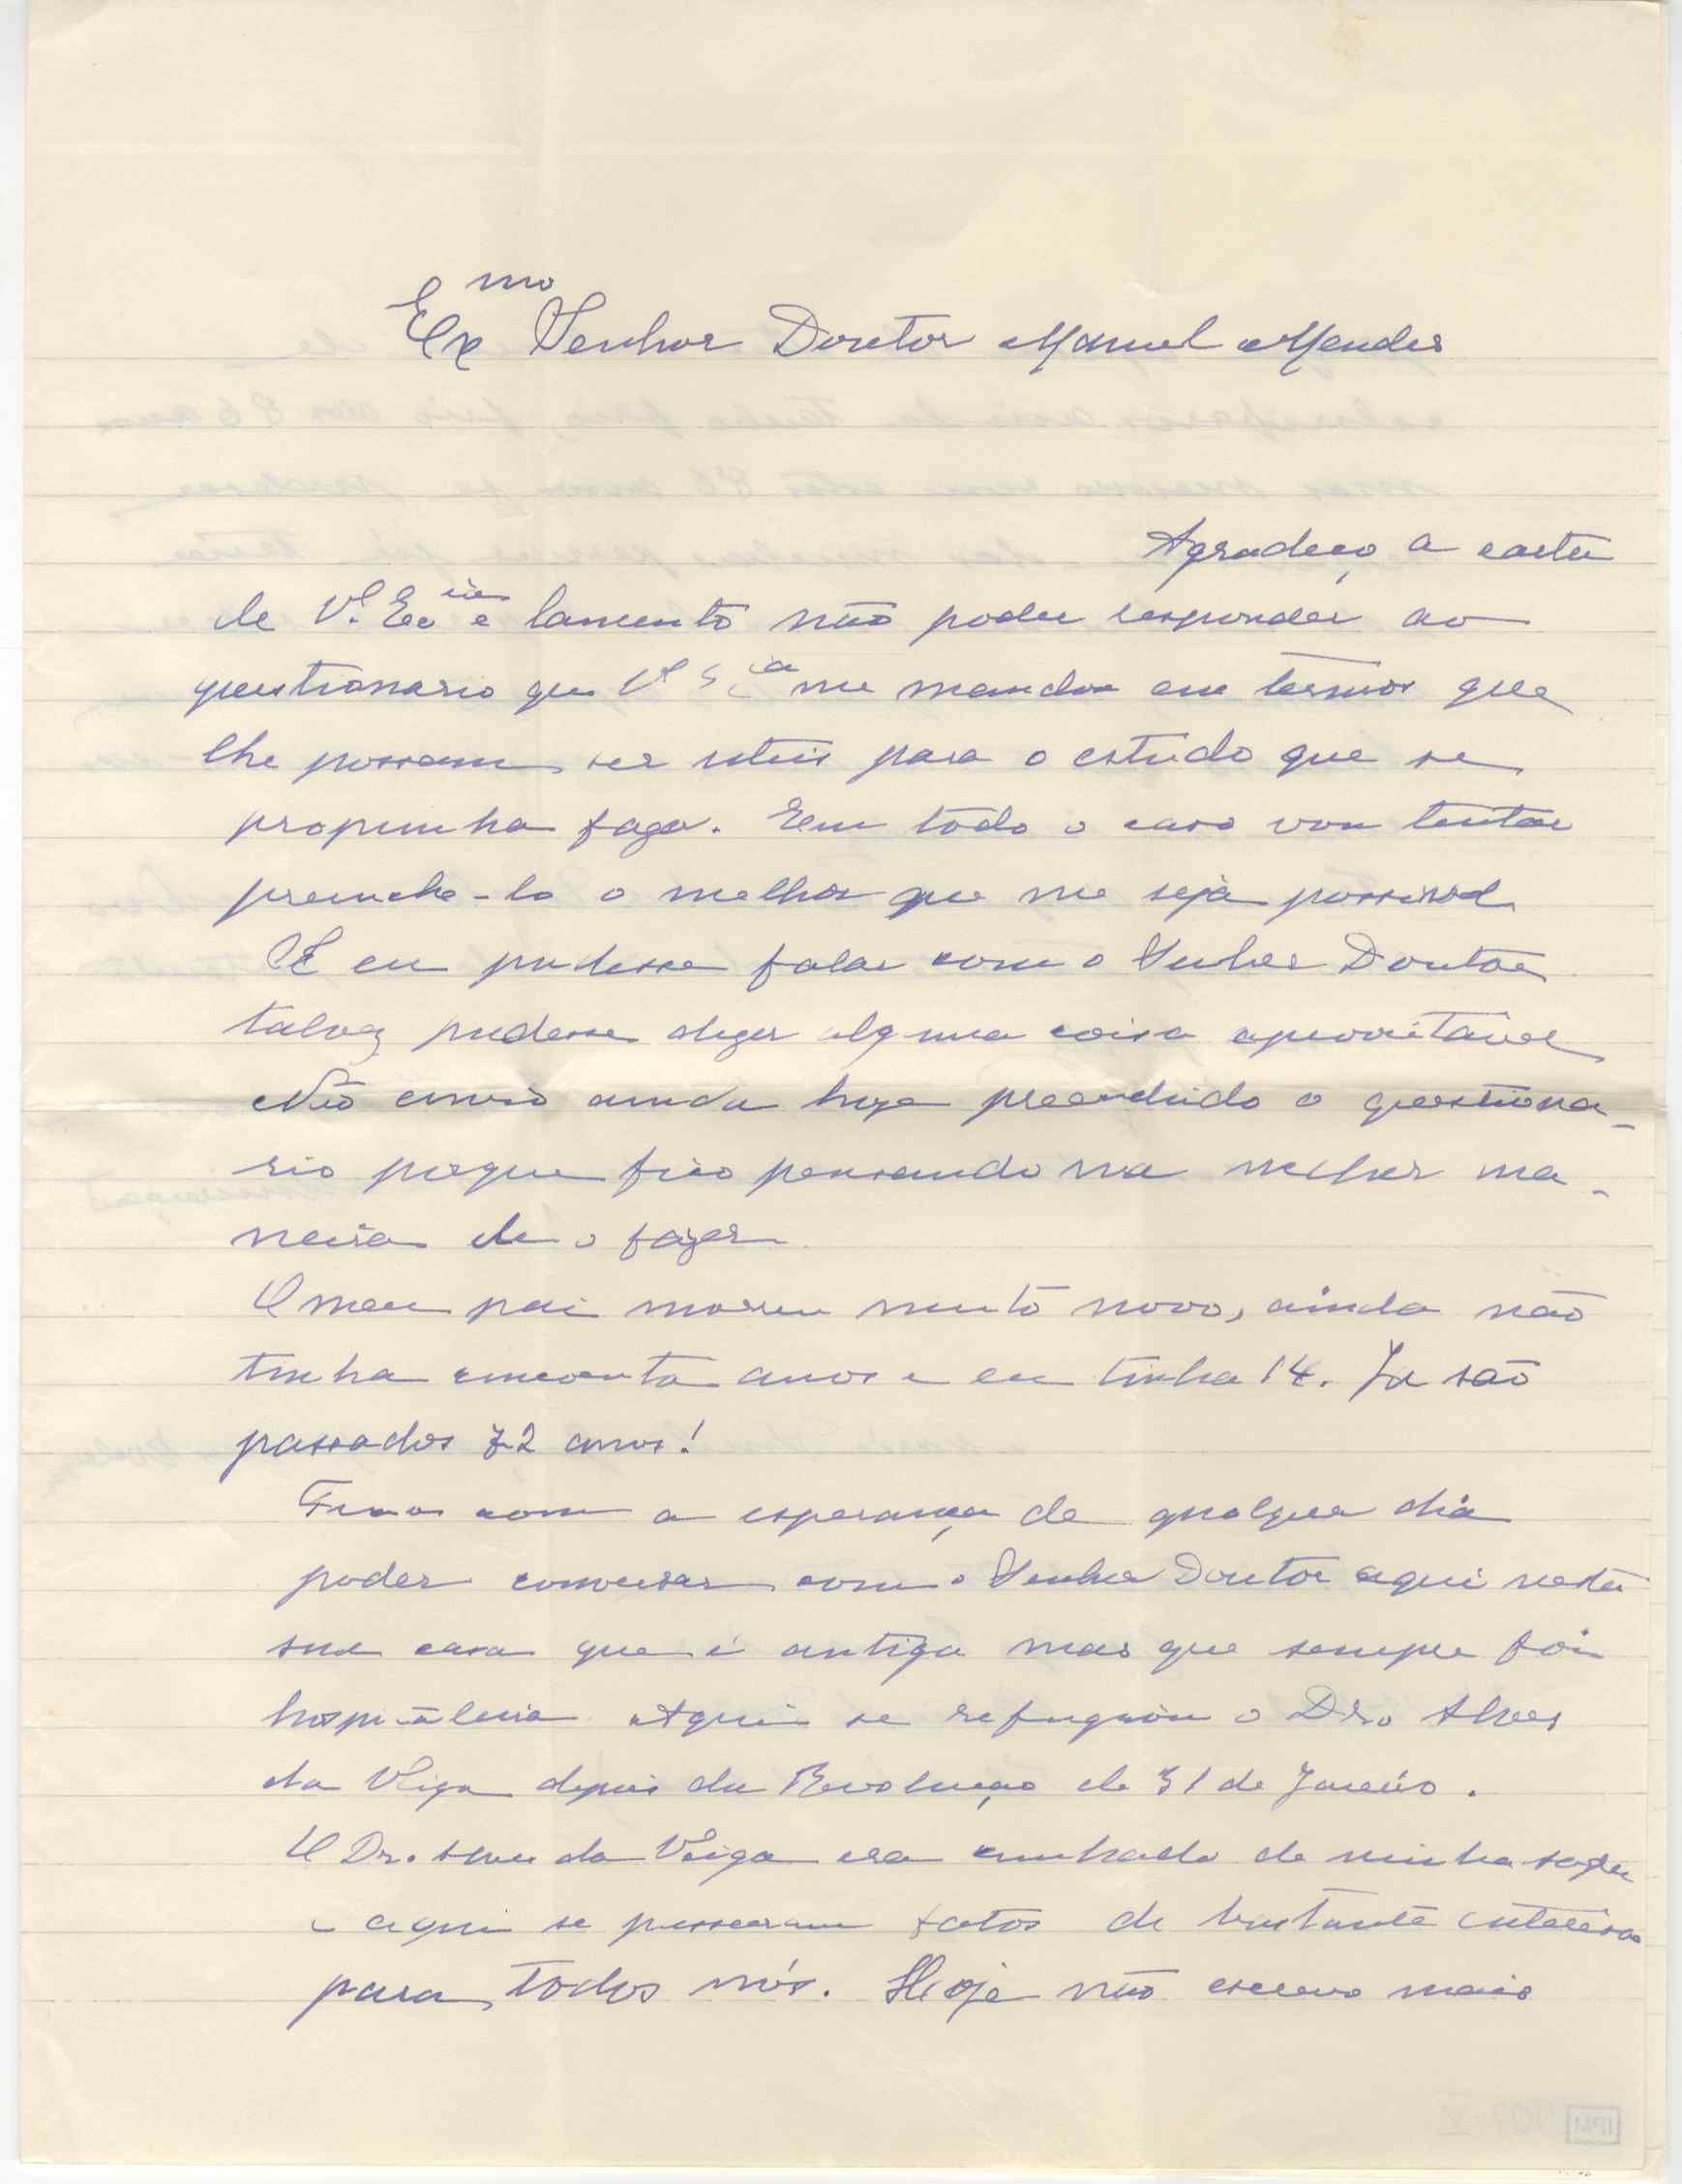 Exmo Senhor Doutor Manuel Mendes
Agradeço a carta
de V. Ecia e lamento não poder responder ao
questionario que V Ecia me mandou em termos que
lhe possam ser uteis para o estudo que se
propunha fazer. Em todo o caso vou tentar
preenche-lo o melhor que me seja possivel
Se eu pudesse falar com o Senhor Doutor
talvez pudesse dizer alguma coisa aproveitavel
Não envio ainda hoje preenchido o questiona-
rio porque fico pensando na melhor ma-
neira de o fazer
O meu pai morreu muito novo, ainda não
tinha cincoenta anos e eu tinha 14. Ja são
passados 72 anos!
com a esperança de qualquer dia
poder conversar com o Senhor Doutor aqui nesta
sua casa que é antiga mas que sempre foi
hospitaleira Aqui se refugiou o Dro Alves
da Veiga depois da Revolução de 31 de Janeiro.
O Dr. Alves da Veiga era cunhado de minha sogra
e aqui se passaram fatos de bastante interesse
para todos nós. Hoje não escrevo mais